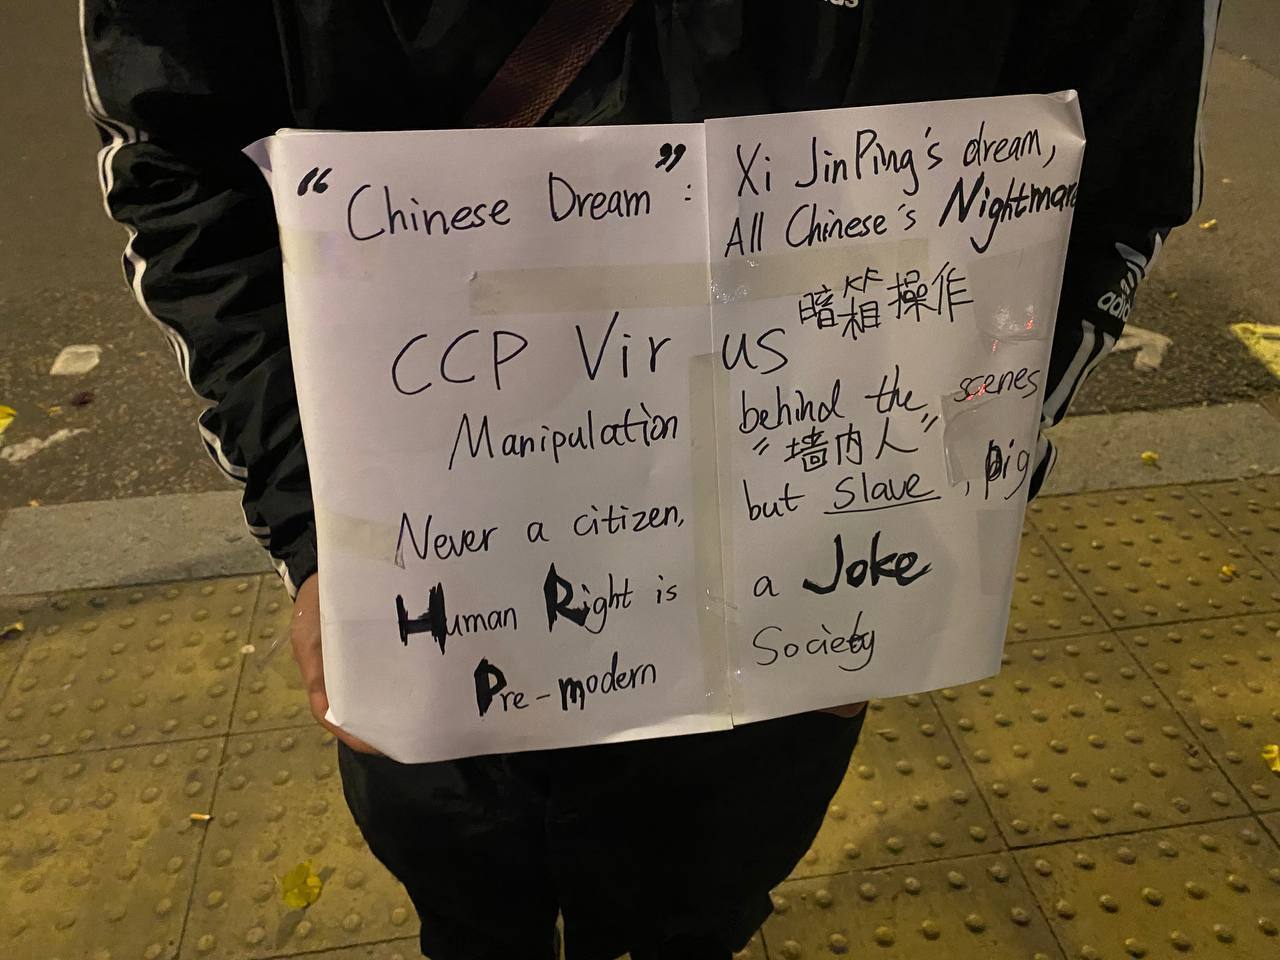 "Chinese Dream": Xi JinPing's dream,
All Chinese's Nightmare
CCP Virus 暗箱操作
Manipulation behind the scenes
"墙内人"
Never a citizen, but slave, pig
Human Right is a Joke
Pre-modern Society
adidas